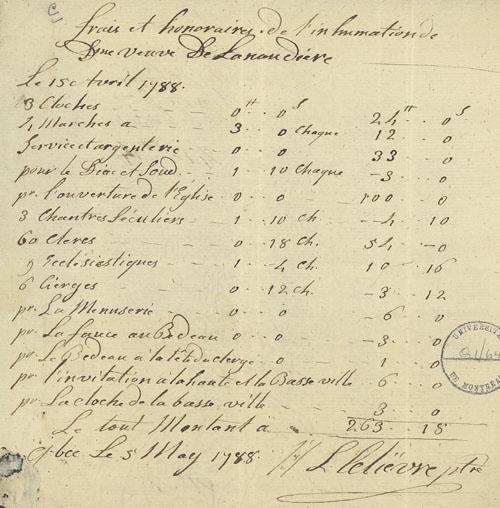 frais et honoraires de l'inhumation de
Dme veuve De Lanaudière
Le 15 Avril 1788.
3 Cloches - - - 0 ‖ .. 0 s 24 ‖ .. 0 s
4 Marches a - - 3 .. 0 Chaque 12 .. 0
Service et argenterie 0 .. 0 33 .. 0
pour le Diac et Soud. - - 1 .. 10 Chaque - 3 .. 0
pr. l'ouverture de l'Eglise - 0 .. 0 100 .. 0
3 Chantres Séculiers - - 1 .. 10 Ch. - 4 .. 10
60 Clercs 0 .. 18 Ch. 54 - 0
9 Ecclésiastiques 1 .. 4 Ch. 10 .. 16
6 Cierges - - - 0 .. 12 Ch. - 3 .. 12
pr. La Menuserie - - 0 .. 0 - 6 .. 0
pr. La fauce au Bedeau 0 .. 0 - 3 .. 0
pr. Le Bedeau à la tête du clergé .. 0 1 .. 0
pr. l'invitation a la haute et la Basse ville 6 .. 0
pr. La cloche de la basse ville - - 3 .. 0
Le tout Montant à 263 .. 18
Qbec Le 5 May 1788. Lelièvre ptre
UNIVERSITÉ
DE MONTRÉAL